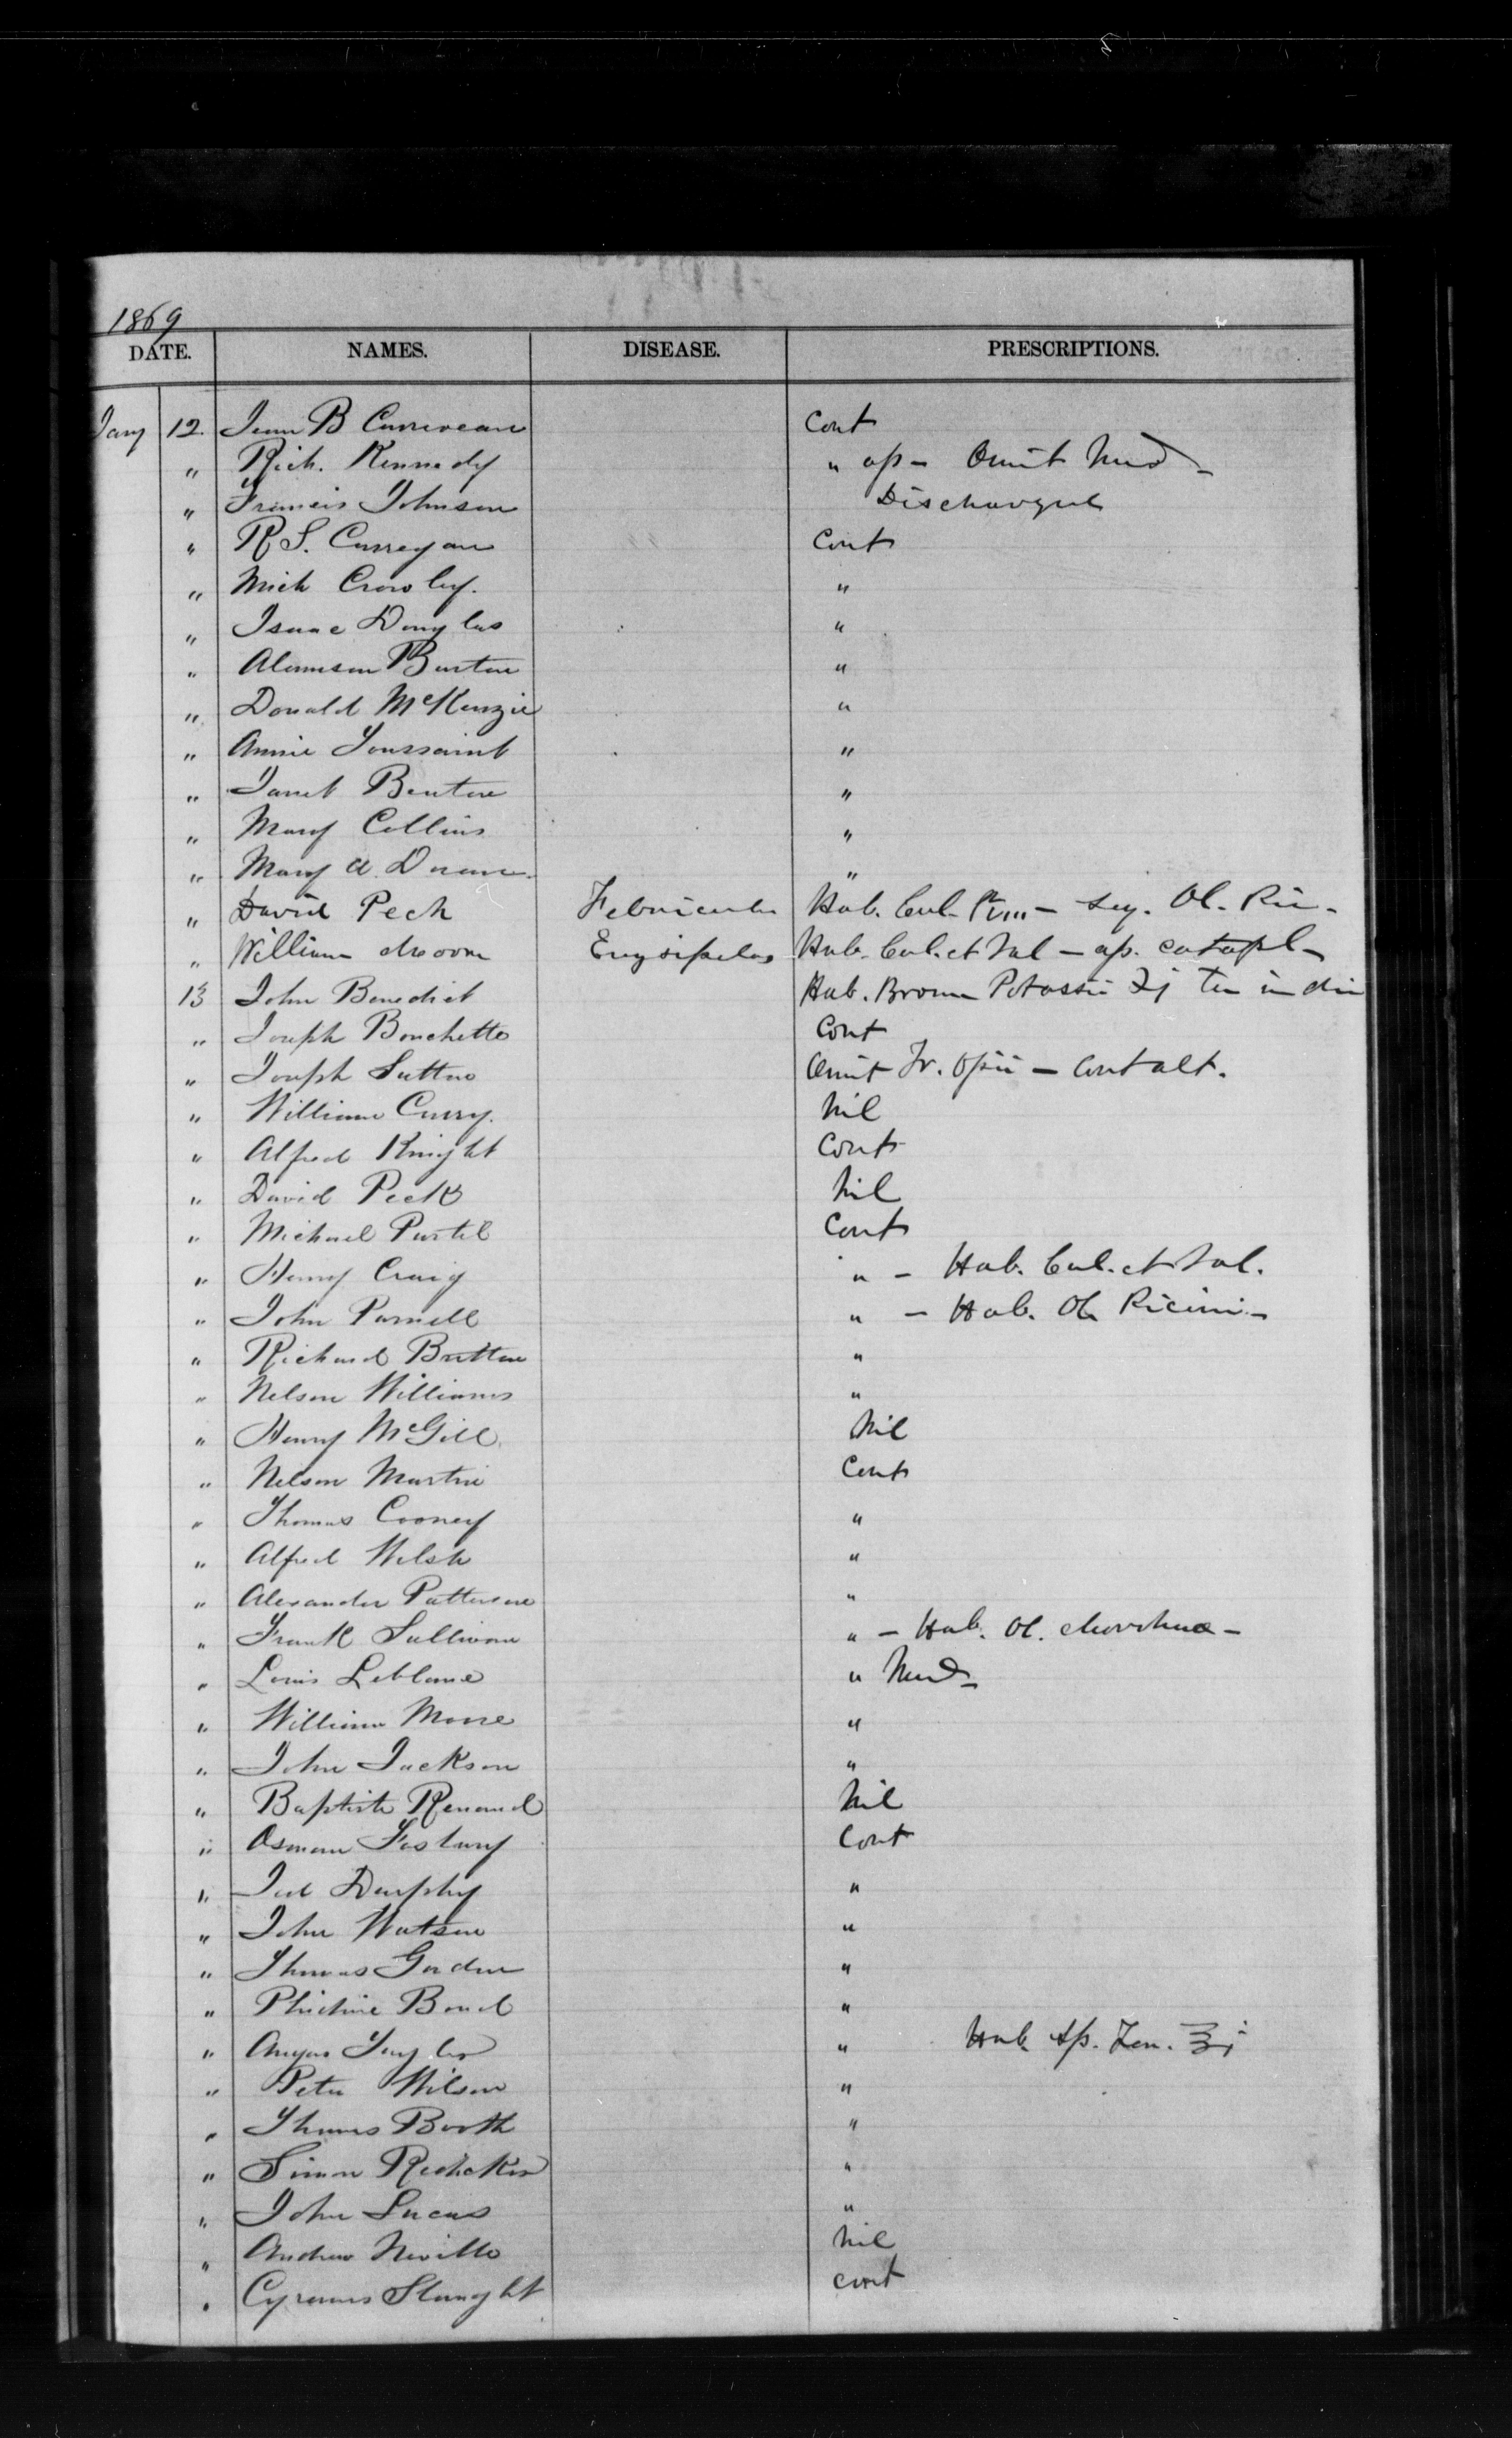 1869
DATE. NAMES. DISEASE. PRESCRIPTIONS.
Jany 12. Jean B Curriveau Cont
" Rich. Kennedy " ap - Omit Med -
" Francis Johnson Discharged
" R S. Curregan Cont
" Mich Crowley. "
" Isaac Douglas "
" Alanson Burton "
" Donald McKenzie "
" Annie Toussaint "
" Janet Benton "
" Mary Collins "
" Mary A. Doran. "
" David Peck Febricula Hab. Cal. - seq. Ol. Ric -
" William Moore Erysipelas Hab. Cal. et Jal - ap. catapl -
13 John Benedict Hab. Brom Potassii ʒj Ter in die
" Joseph Bouchette Cont
" Joseph Sutton Omit Tr. Opii - Cont alt.
" William Curry. Nil
" Alfred Knight Cont
" David Peck Nil
" Michael Purtel Cont
" Henry Craig " - Hab. Cal. et Jal.
" John Parnell " - Hab. Ol. Ricini -
" Richard Britton "
" Nelson Williams "
" Henry McGill. Nil
" Nelson Martin Cont
" Thomas Cooney "
" Alfred Welsh "
" Alexander Patterson "
" Frank Sullivan " - Hab. Ol. Morrhuae -
" Louis Leblanc " Med -
" William Moore "
" John Jackson "
" Baptiste Renaud Nil
" Osman Fosbury Cont
" Joel Dunphy "
" John Watson "
" Thomas Gordon "
" Bond "
" Angus Taylor " Hab. Sp. Ʒj
" Peter Wilson "
" Thomas Booth "
" Simon "
" John Lucas "
" Andrew Neville Nil
" Cyrenus Slaught Cont